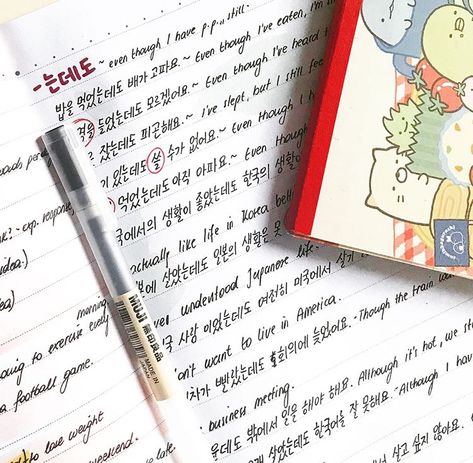 -는데도 ~ even though I have p.p., still..
밥을 먹었는데도 배가 고파요. ~ Even though I've eaten, I'm
들었는데도 모르겠어요. ~ Even though I've heard
잤는데도 피곤해요. ~ I've slept, but I still
있는데도 쓸 수가 없어요. ~ Even though I
먹었는데도 아직 아파요. ~ Even though I
생활이 좋았는데도 한국의
actually like life in Korea
살았는데도 일본의 생활을 못
understood Japanese life.
사람이었는데도 여전히 미국에서 살기
want to live in America.
빨랐는데도 회의에 늦었어요. - Though the train
business meeting.
밖에서 일을 해야 해요. Although it's hot, we
살았는데도 한국어를 잘 못해요. - Although I
살고 싶지 않아요.
exp. response
idea.)
morning
to exercise every
a football game.
to lose weight
weekend.
MUJI 無印良品
MADE IN